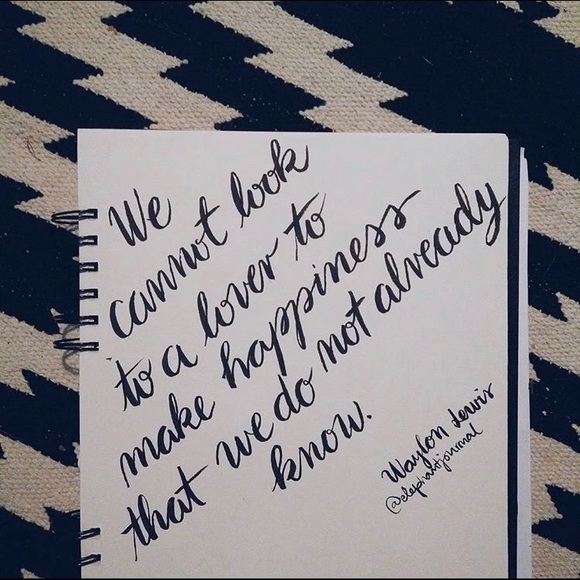 We
cannot look
to a lover to
make happiness
that we do not already
know.
Waylon Lewis
@elephantjournal